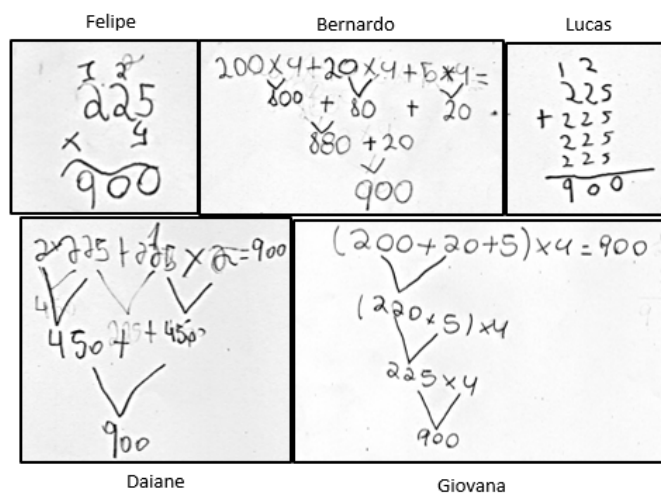 Felipe
1 2
225
x 4
900
Bernardo
200×4+20×4+5×4=
800 + 80 + 20
880 +20
900
Lucas
1 2
225
+ 225
225
225
900
2×225+225×2=900
450+ 450
900
Daiane
(200+20+5)×4=900
(220×5)×4
225×4
900
Giovana